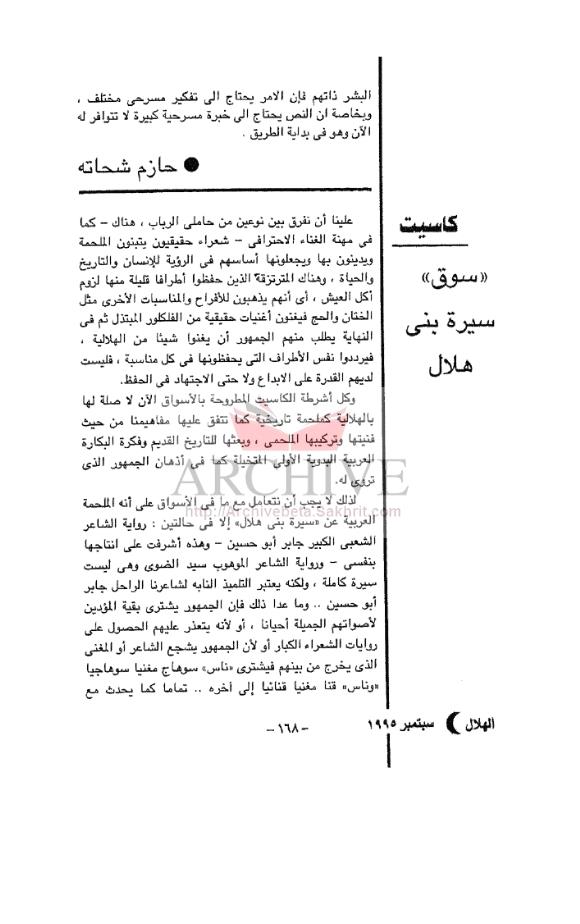 البشر ذاتهم فإن الامر يحتاج الى تفكير مسرحى مختلف ،
وبخاصة ان النص يحتاج الى خبرة مسرحية كبيرة لا تتوافر له
الآن وهو فى بداية الطريق .
● حازم شحاته
كاسيت
«سوق»
سيرة بنى
هلال
علينا أن نفرق بين نوعين من حاملى الرباب ، هناك – كما
فى مهنة الغناء الاحترافى – شعراء حقيقيون يتبنون الملحمة
ويدينون بها ويجعلونها أساسهم فى الرؤية للإنسان والتاريخ
والحياة ، وهناك المرتزقة الذين حفظوا أطرافا قليلة منها لزوم
أكل العيش ، أى أنهم يذهبون للأفراح والمناسبات الأخرى مثل
الختان والحج فيغنون أغنيات حقيقية من الفلكلور المبتذل ثم فى
النهاية يطلب منهم الجمهور أن يغنوا شيئا من الهلالية ،
فيرددوا نفس الأطراف التى يحفظونها فى كل مناسبة ، فليست
لديهم القدرة على الابداع ولا حتى الاجتهاد فى الحفظ.
وكل أشرطة الكاسيت المطروحة بالأسواق الآن لا صلة لها
بالهلالية كملحمة تاريخية كما نتفق عليها مفاهيمنا من حيث
فنيتها وتركيبها الملحمى ، وبعثها للتاريخ القديم وفكرة البكارة
العربية البدوية الأولى المتخيلة كما فى أذهان الجمهور الذى
تروى له.
لذلك لا يجب أن نتعامل مع ما فى الأسواق على أنه الملحمة
العربية عن «سيرة بنى هلال» إلا فى حالتين : رواية الشاعر
الشعبى الكبير جابر أبو حسين – وهذه أشرفت على انتاجها
بنفسى – ورواية الشاعر الموهوب سيد الضوى وهى ليست
سيرة كاملة ، ولكنه يعتبر التلميذ النابه لشاعرنا الراحل جابر
أبو حسين .. وما عدا ذلك فإن الجمهور يشترى بقية المؤدين
لأصواتهم الجميلة أحيانا ، أو لأنه يتعذر عليهم الحصول على
روايات الشعراء الكبار أو لأن الجمهور يشجع الشاعر أو المغنى
الذى يخرج من بينهم فيشترى «ناس» سوهاج مغنيا سوهاجيا
«وناس» قنا مغنيا قنائيا إلى آخره .. تماما كما يحدث مع
ARCHIVE
http://Archivebeta.Sakhrit.com
الهلال سبتمبر ١٩٩٥
– ١٦٨ –